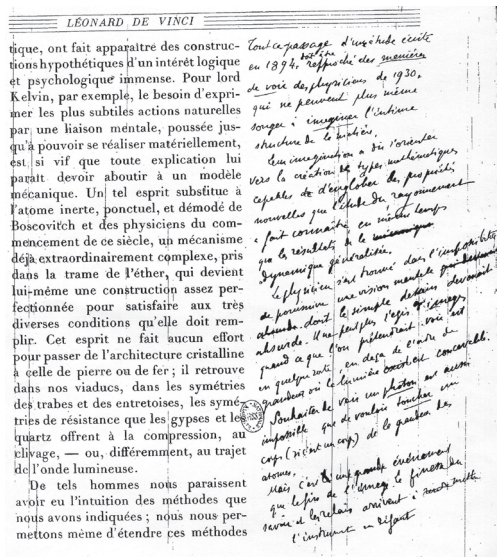 LÉONARD DE VINCI
tique, ont fait apparaître des construc-
tions hypothétiques d'un intérêt logique
et psychologique immense. Pour lord
Kelvin, par exemple, le besoin d'expri-
mer les plus subtiles actions naturelles
par une liaison mentale, poussée jus-
qu'à pouvoir se réaliser matériellement,
est si vif que toute explication lui
paraît devoir aboutir à un modèle
mécanique. Un tel esprit substitue à
l'atome inerte, ponctuel, et démodé de
Boscovitch et des physiciens du com-
mencement de ce siècle, un mécanisme
déjà extraordinairement complexe, pris
dans la trame de l'éther, qui devient
lui-même une construction assez per-
fectionnée pour satisfaire aux très
diverses conditions qu'elle doit rem-
plir. Cet esprit ne fait aucun effort
pour passer de l'architecture cristalline
à celle de pierre ou de fer ; il retrouve
dans nos viaducs, dans les symétries
des trabes et des entretoises, les symé-
tries de résistance que les gypses et les
quartz offrent à la compression, au
clivage, — ou, différemment, au trajet
de l'onde lumineuse.
De tels hommes nous paraissent
avoir eu l'intuition des méthodes que
nous avons indiquées ; nous nous per-
mettons même d'étendre ces méthodes
Tout ce passage d'une étude écrite
en 1894, doit être rapproché des manières
de voir des physiciens de 1930,
qui ne peuvent plus même
songer à imaginer l'intime
structure de la matière.
Leur imagination a dû s'orienter
vers la création de types mathématiques
capables d'englober les propriétés
nouvelles que l'étude du rayonnement
a fait connaître en même temps
que les résultats de la
dynamique généralisée.
Le physicien s'est trouvé dans l'impossibilité
de poursuivre une vision mentale
dont le simple dessin devenait
absurde. Il ne peut plus s'agir d'images
quand ce que l'on prétendrait voir est
en quelque sorte en deçà de l'ordre de
grandeur où la lumière est concevable.
Souhaiter de voir un photon est aussi
impossible que de vouloir toucher un
corps (si c'est un corps) de la grandeur des
atomes.
Mais c'est un grand événement
que le fin de l'image, la finesse du
savoir et les relais arrivent à
l'instrument